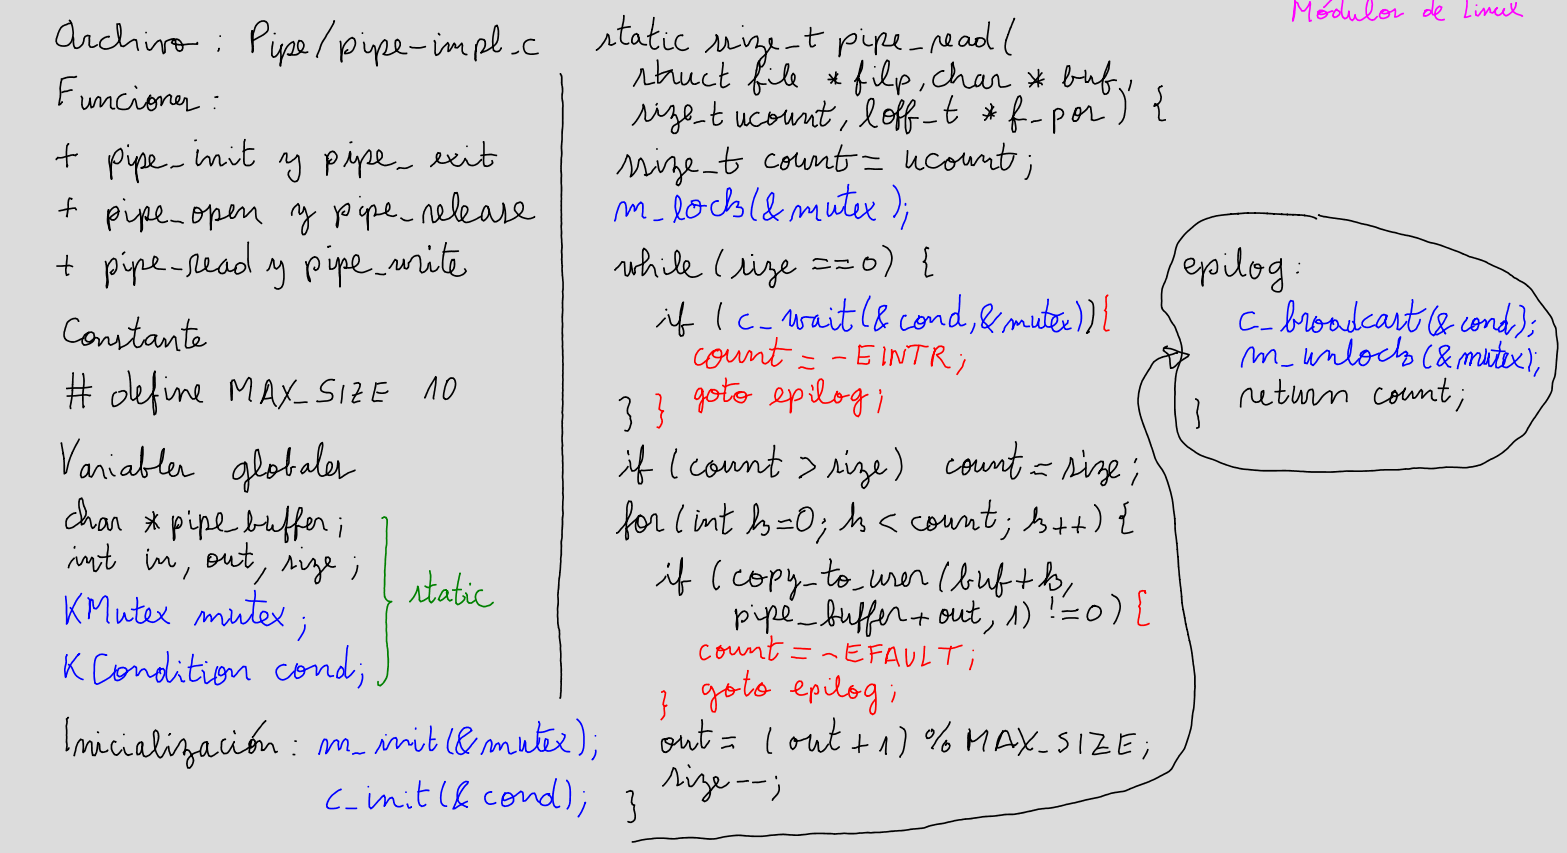 Módulos de Linux
Archivo: Pipe/pipe-impl.c
Funciones:
+ pipe_init y pipe_exit
+ pipe_open y pipe_release
+ pipe_read y pipe_write
Constante
# define MAX_SIZE 10
Variables globales
char *pipe_buffer;
int in, out, size;
KMutex mutex;
KCondition cond;
static
Inicialización: m_init(&mutex);
c_init(&cond);
static ssize_t pipe_read(
struct file *filp, char *buf,
size_t ucount, loff_t *f_pos) {
ssize_t count = ucount;
m_lock(&mutex);
while (size == 0) {
if (c_wait(&cond, &mutex)){
count = -EINTR;
goto epilog;
} }
if (count > size) count = size;
for (int k=0; k < count; k++) {
if (copy_to_user (buf+k,
pipe_buffer+out, 1) != 0) {
count = -EFAULT;
} goto epilog;
out = (out+1) % MAX_SIZE;
size--;
}
epilog:
c_broadcast(&cond);
m_unlock(&mutex);
return count;
}